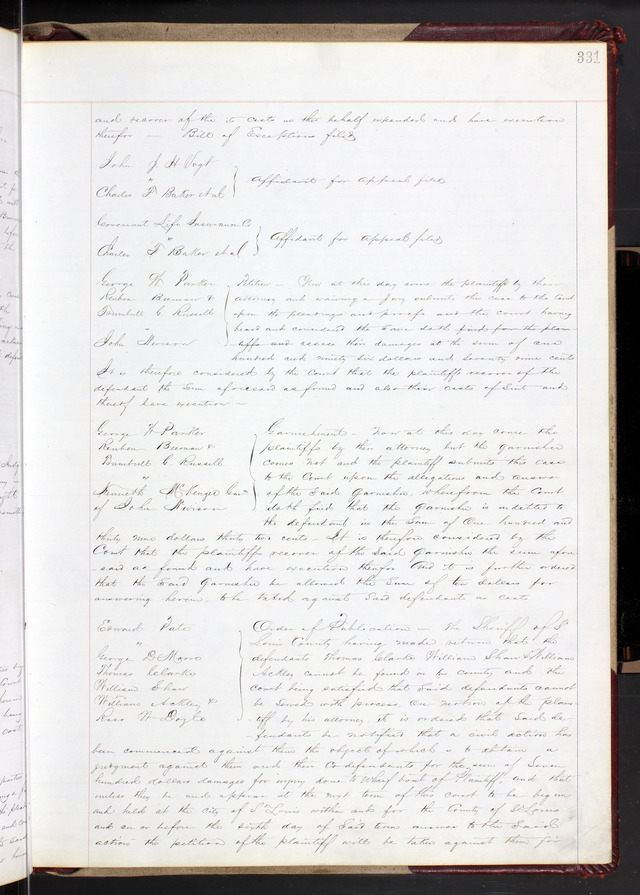 331
and recover of the its costs in this behalf expended and have execution
therefor — Bill of Exceptions filed
John J H Vogt
"
Charles F Baker et al } Affidavit for appeal filed
Covenant Life Insurance Co
"
Charles F Baker et al } Affidavit for appeal filed
George W Parker
Reuben Beeman &
Turnbull C Russell
"
John
Petition — Now at this day come the plaintiffs by their
attorney and waiving a Jury submits this case to the Court
upon the pleadings and proofs and the court having
heard and considered the same doth find for the plain-
-tiffs and assess their damages at the sum of one
hundred and ninety six dollars and seventy nine cents
It is therefore considered by the Court that the plaintiffs recover of the
defendant the Sum aforesaid as found and also their costs of Suit and
thereof have execution —
George W Parker
Reuben Beeman &
Turnbull C. Russell
"
Kenneth McKenzie Gar
of John
Garnishment — Now at this day come the
plaintiffs by their attorney but the garnishee
comes not and the plaintiff submits this case
to the Court upon the allegations and answer
of the said Garnishee, wherefrom the Court
doth find that the garnishee is indebted to
the defendant in the Sum of One hundred and
thirty nine dollars thirty two cents — It is therefore considered by the
Court that the plaintiffs recover of the said Garnishee the sum afore
-said as found and have execution therefor And it is further ordered
that the said Garnishee be allowed the Sum of ten dollars for
answering herein, to be taxed against said defendants as costs
Edward Tate
"
George D Moore
Thomas Clarke
William Shaw
William Ackley &
W Doyle
Order of Publication — The Sheriff of St
Louis County having made return that the
defendants Thomas Clarke William Shaw & William
Ackley cannot be found in his county and the
court being satisfied that said defendants cannot
be served with process, On motion of the plain-
-tiff by his attorney it is ordered that said de-
-fendants be notified that a civil action has
been commenced against them the object of which is to obtain a
judgment against them and their Co defendants for the sum of Seven
hundred dollars damages for injury done to Wharf boat of Plaintiff, and that
unless they be and appear at the next term of this court to be begun
and held at the city of St Louis within and for the County of St Louis
and on or before the sixth day of said term answer to the said
action the petition of the plaintiff will be taken against them for